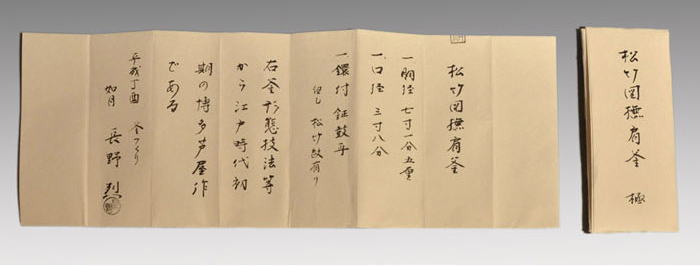 松竹図撫肩釜 極
松竹図撫肩釜
一胴径 七寸一分五厘
一口径 三寸八分
一鐶付 鉦鼓耳
但し 松竹紋有り
右釜形態技法等
から江戸時代初
期の博多芦屋作
である
平成丁酉 釜つくり
如月 長野 烈